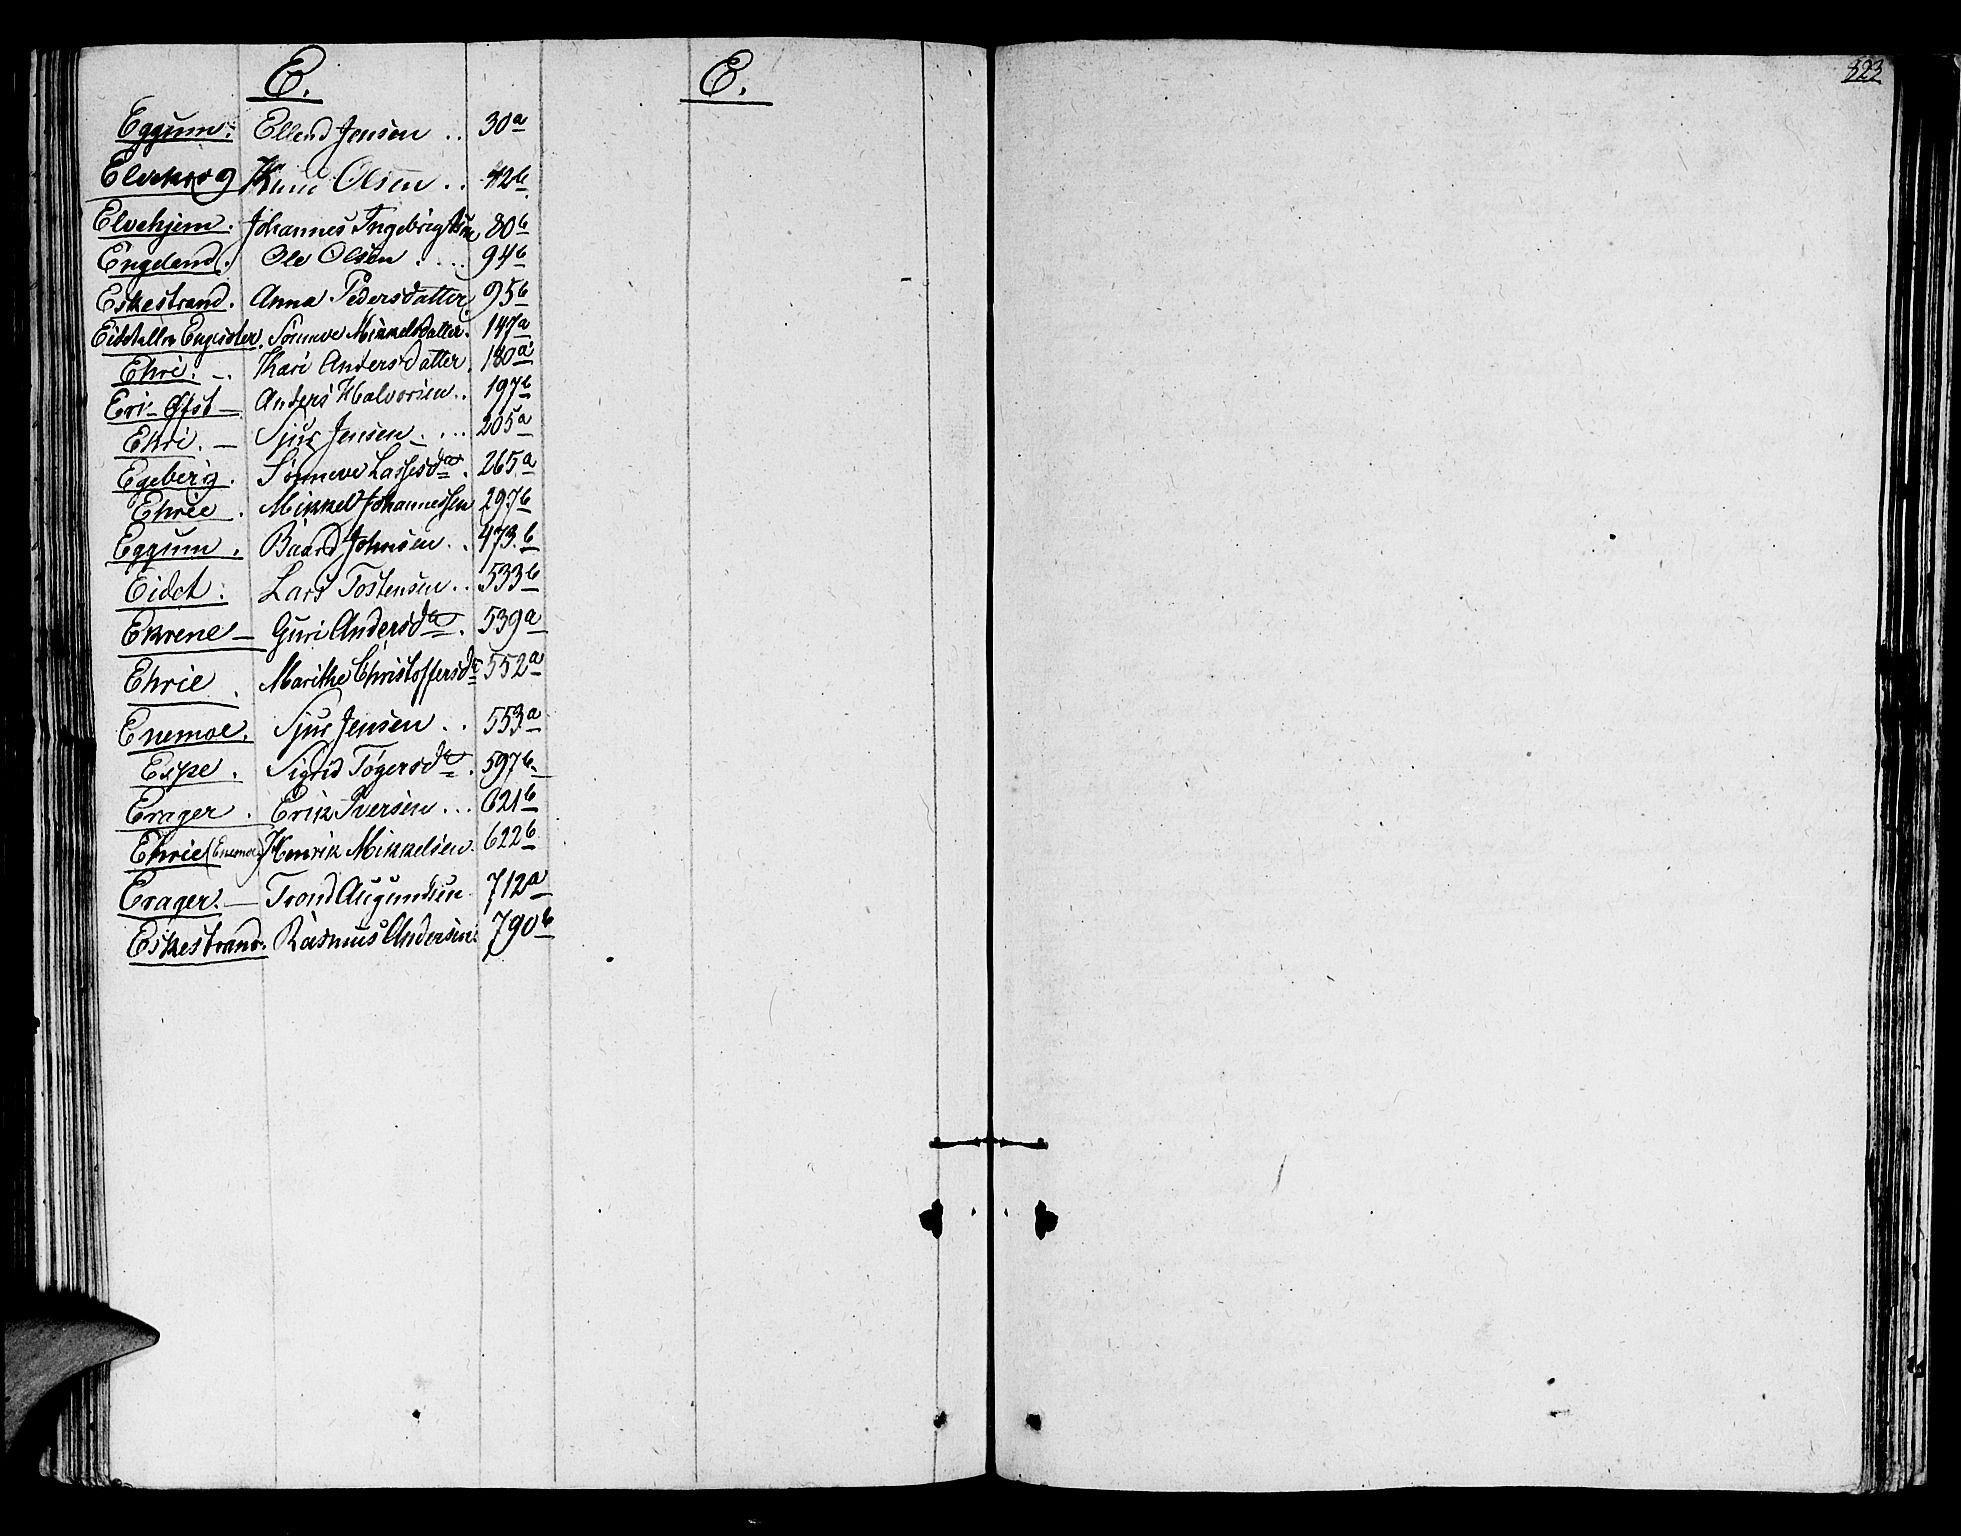 E.
E.
823
Eggum: Ellend Jensen .. 30a
Elvekrog Knud Olsen .. 42b
Elvehjem. Johannes Ingebrigtsen 80b
Engeland. Ole Olsen . ... 94b
Eskestrand. Anna Pedersdatter 95b
Sønneve Mikkelsdatter. 147a
Ekri. -. Kari Andersdatter. 180a
Eri-Øfst- Anders Halvorsen.. 197b
Ekri. - Sjur Jensen . ... 205a
Egeberg. Sønneve Lassesda. 265a
Ehrie . Mikkel Johannessen 297b
Eggum . Baard Johnsen . . 473.b
Eidet: Lars Tostensen .. 533b
Ekrene - Guri Andersda . 539a
Ehrie . Marithe Christoffersda 552a
Enemoe. Sjur Jensen .. 553a
Espe . Sigrid Tøgersda . 597b
Erager . Erik Iversen ... 621b
Ehrie (Enemoe) Henrik Mikkelsen. 622b
Erager. - Trond Augundsen 712a
Eskestrand. Rasmus Andersen: 790b